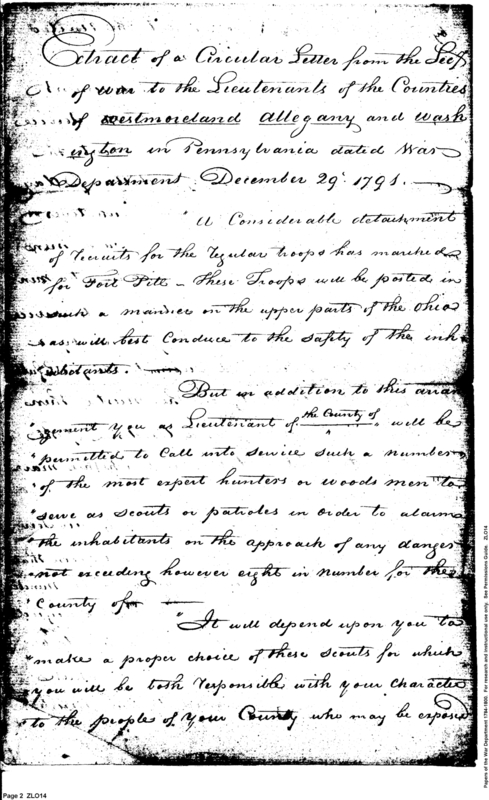 Extract of a Circular Letter from the Secy
of war to the Lieutenants of the Counties
of westmoreland Allegany and wash
ington in Pennsylvania dated War
Department December 29th 1791.
"A Considerable detachment
of recruits for the regular troops has marched
for Fort Pitt - these Troops will be posted in
such a manner on the upper parts of the Ohio
as will best Conduce to the safety of the inh
abitants.
But in addition to this arran
"gement you as Lieutenant of the County of will be
"permitted to Call into service such a number
"of the most expert hunters or woods men to
"serve as scouts or patroles in order to alarm
"the inhabitants on the approach of any danger
"not exceeding however eight in number for the
"County of
"It will depend upon you to
"make a proper choice of these scouts for which
"you will be both responsible with your character
"to the people of your County who may be exposed
Page 2 ZLO14
Papers of the War Department 1784-1800. For research and instructional use only. See Permissions Guide. ZLO14